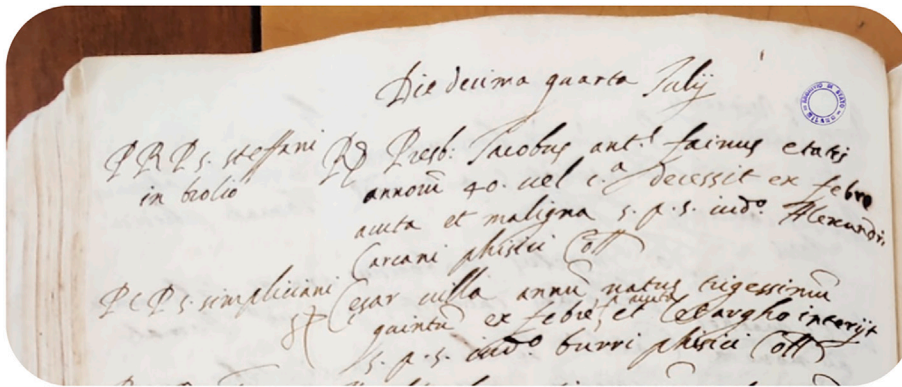 Die decima quarta Julij
P R P S. steffani
in brolio
R.D. Presb: Jacobus ant.s fainus etatis
annorū 40. uel c.a decessit ex febre
acuta et maligna s. p. s. iud.o Alexandri
Carcani phisici Coll
P C P S. simpliciani
Cesar uilla annū natus trigessimū
quintū ex febre acuta et letargho interijt
s. p. s. iud.o burri phisici Coll
ARCHIVIO DI STATO MILANO